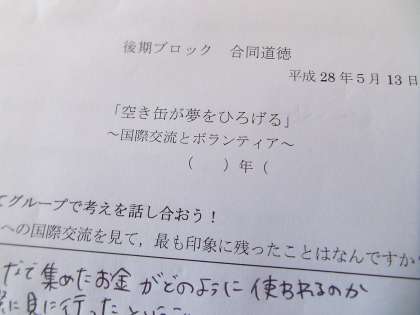 後期ブロック 合同道徳
平成28年5月13日
「空き缶が夢をひろげる」
～国際交流とボランティア～
( )年(
てグループで考えを話し合おう！
への国際交流を見て，最も印象に残ったことはなんですか
なで集めたお金がどのように使われるのか
に見に行ったという